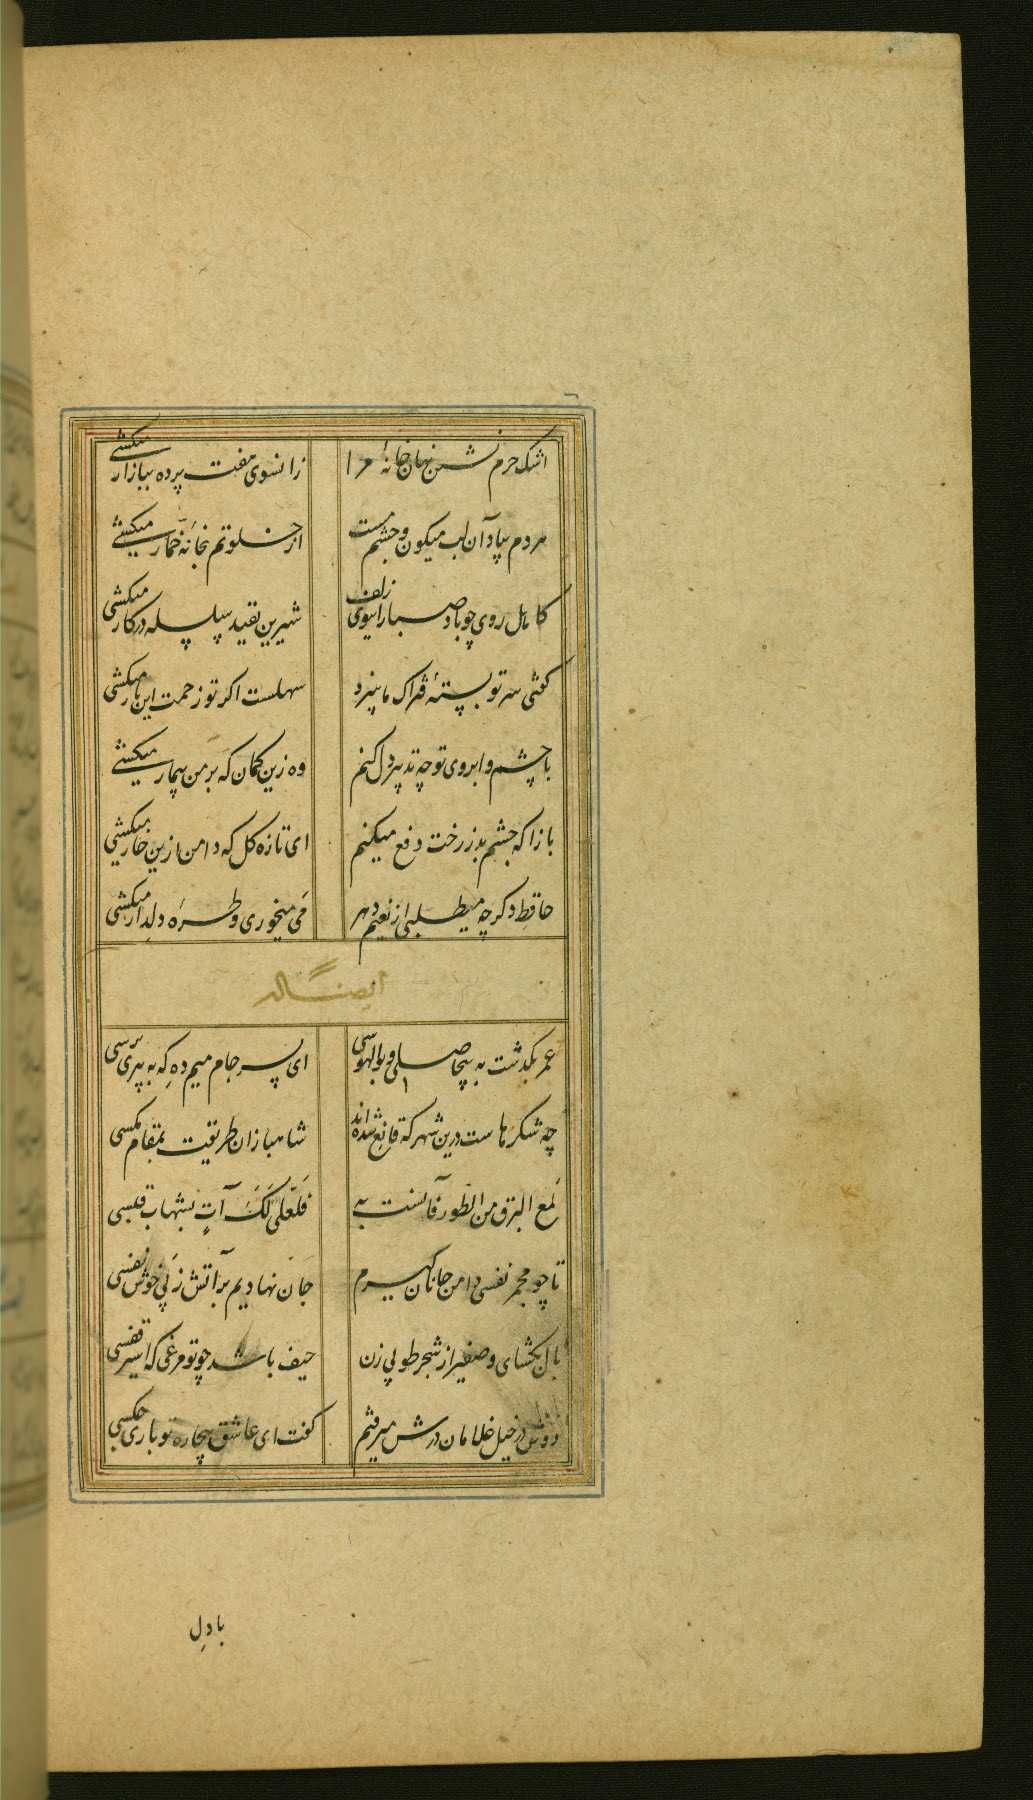 اشک حرم نشین نهان خانهٔ مرا زانسوی هفت پرده ببازار میکشی
هر دم بیاد آن لب میکون و چشم مست از خلوتم بخانهٔ خمار میکشی
کاهل روی چو باد صبا را ببوی زلف شیرین بقید سلسله در کار میکشی
کفتی سر تو بستهٔ فتراک ما سزد سهلست اکر تو زحمت این بار میکشی
با چشم و ابروی تو چه تدبیر دل کنم وه زین کمان که بر من بیمار میکشی
بازا که چشم بد ز رخت دفع میکنم ای تازه کل که دامن ازین خار میکشی
حافظ دکر چه میطلبی از نعیم دهر می میخوری و طرهٔ دلدار میکشی
ایضاً له
عمر بکذشت به بیحاصلی و بوالهوسی ای پسر جام میم ده که به پیری برسی
چه شکرهاست درین شهر که قانع شده‌اند شاهبازان طریقت بمقام مکسی
لمع البرق من الطور و آنست به فلعلی لک آت بشهاب قبسی
تا چو مجمر نفسی دامن جانان کیرم جان نهادیم بر آتش ز پی خوش نفسی
بال بکشای و صفیر از شجر طوبی زن حیف باشد چو تو مرغی که اسیر قفسی
دوش در خیل غلامان درش میرفتم کفت ای عاشق بیچاره تو باری چکسی
با دل